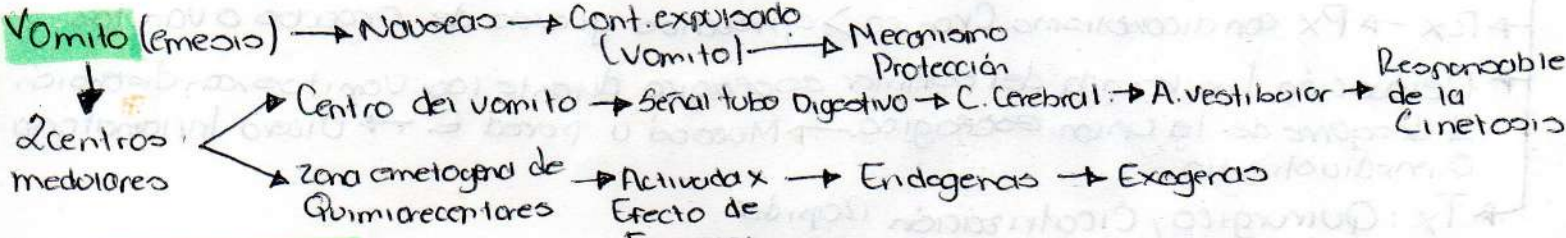 Vomito (emesis) → Nauseas → Cont. expulsado (vomito) → Mecanismo Protección
2 centros medulares
Centro del vomito → Señal tubo Digestivo → C. Cerebral. → A. vestibular → Responsable de la Cinetosis
Zona emetogena de Quimiareceptores → Activada x Efecto de → Endogenas → Exogenas